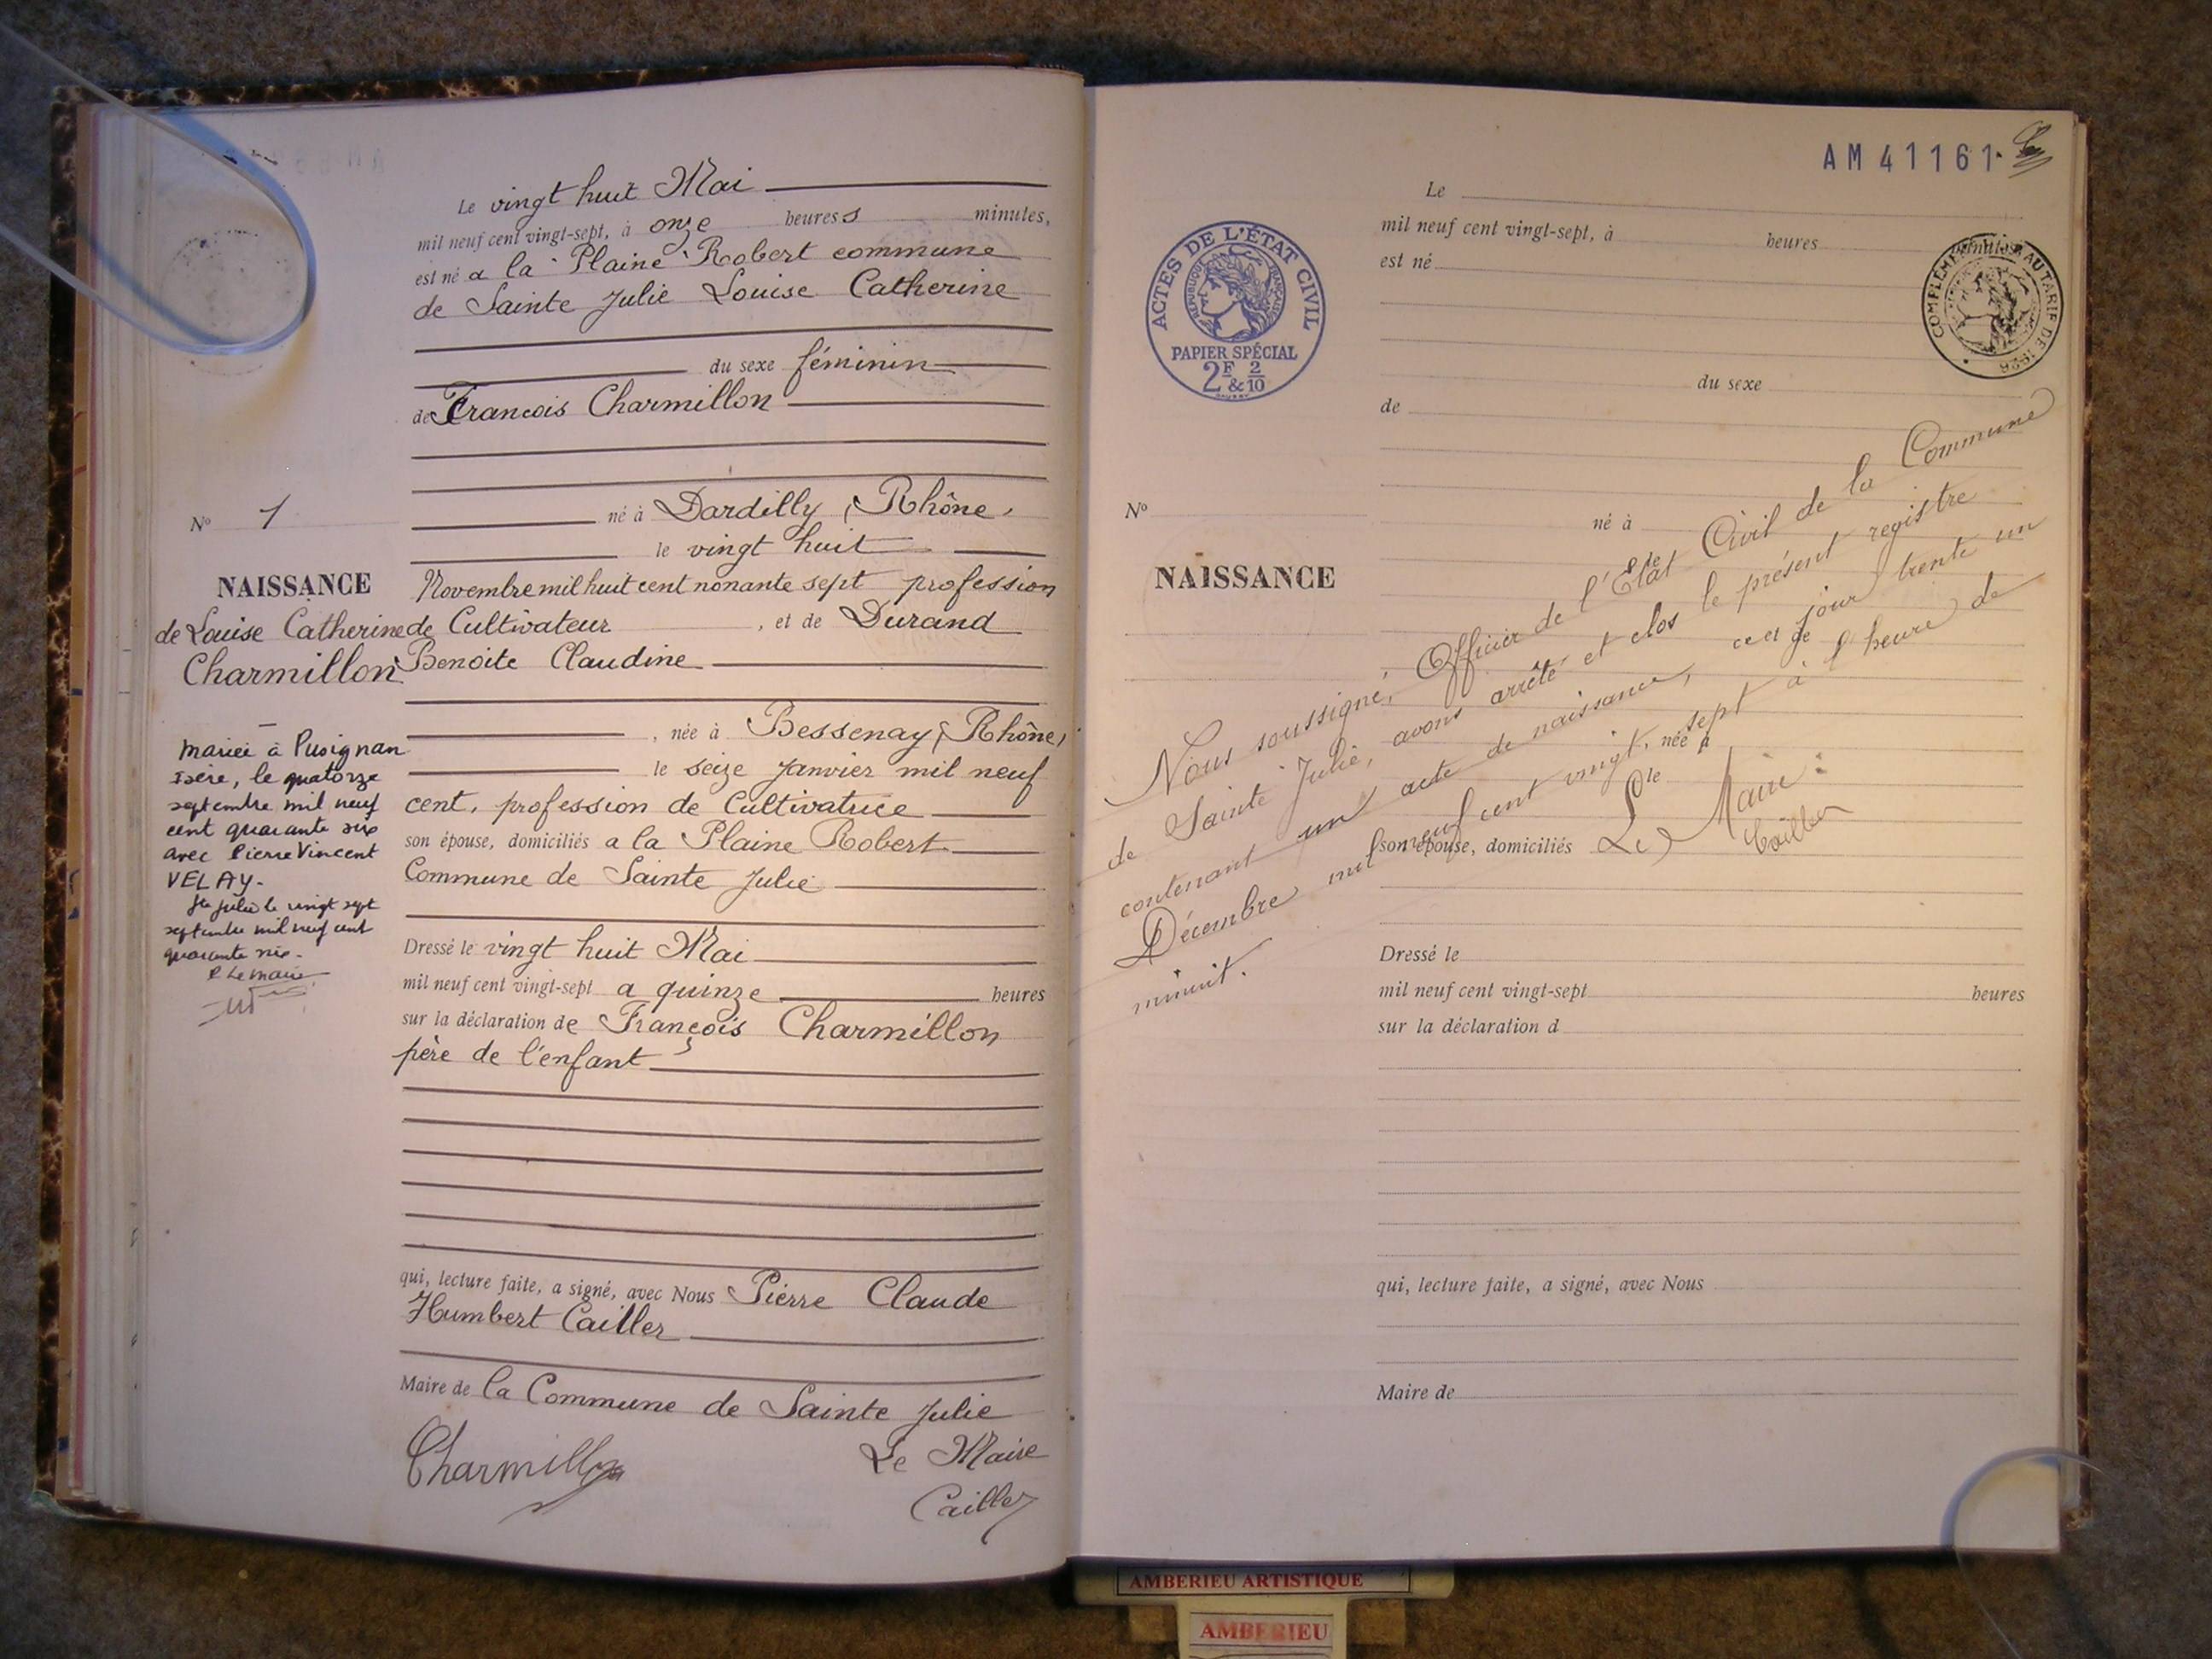 Le vingt huit Mai
mil neuf cent vingt-sept, à onze heures s minutes,
est né a la Plaine Robert commune
de Sainte Julie Louise Catherine
du sexe féminin
de François Charmillon
né à Dardilly (Rhône)
le vingt huit
Novembre mil huit cent nonante sept profession
de Cultivateur, et de Durand
Benoite Claudine
, née à Bessenay (Rhône)
le seize Janvier mil neuf
cent, profession de Cultivatrice
son épouse, domiciliés a la Plaine Robert
Commune de Sainte Julie
Dressé le vingt huit Mai
mil neuf cent vingt-sept a quinze heures
sur la déclaration de François Charmillon
père de l'enfant
qui, lecture faite, a signé, avec Nous Pierre Claude
Humbert Cailler
Maire de la Commune de Sainte Julie
Charmillon
Le Maire
Cailler
No 1
NAISSANCE
de Louise Catherine
Charmillon
mariée à Pusignan
Isère, le quatorze
septembre mil neuf
cent quarante six
avec Pierre Vincent
VELAY-
Ste Julie le vingt sept
septembre mil neuf cent
quarante six-
Le Maire
AM 41161
ACTES DE L'ÉTAT CIVIL
RÉPUBLIQUE FRANÇAISE
PAPIER SPÉCIAL
2F & 2/10
COMPLÉMENT AU TARIF DE 1926
Le
mil neuf cent vingt-sept, à heures minutes,
est né
du sexe
de
No
né à
le
NAISSANCE
profession
, et de
Nous soussigné, Officier de l'Etat Civil de la Commune
de Sainte Julie, avons arrêté et clos le présent registre
contenant un acte de naissance, ce jour trente un
Décembre mil neuf cent vingt sept à l'heure de
minuit.
Le Maire:
Cailler
, née à
le
son épouse, domiciliés
Dressé le
mil neuf cent vingt-sept heures
sur la déclaration d
qui, lecture faite, a signé, avec Nous
Maire de
AMBERIEU ARTISTIQUE
AMBERIEU